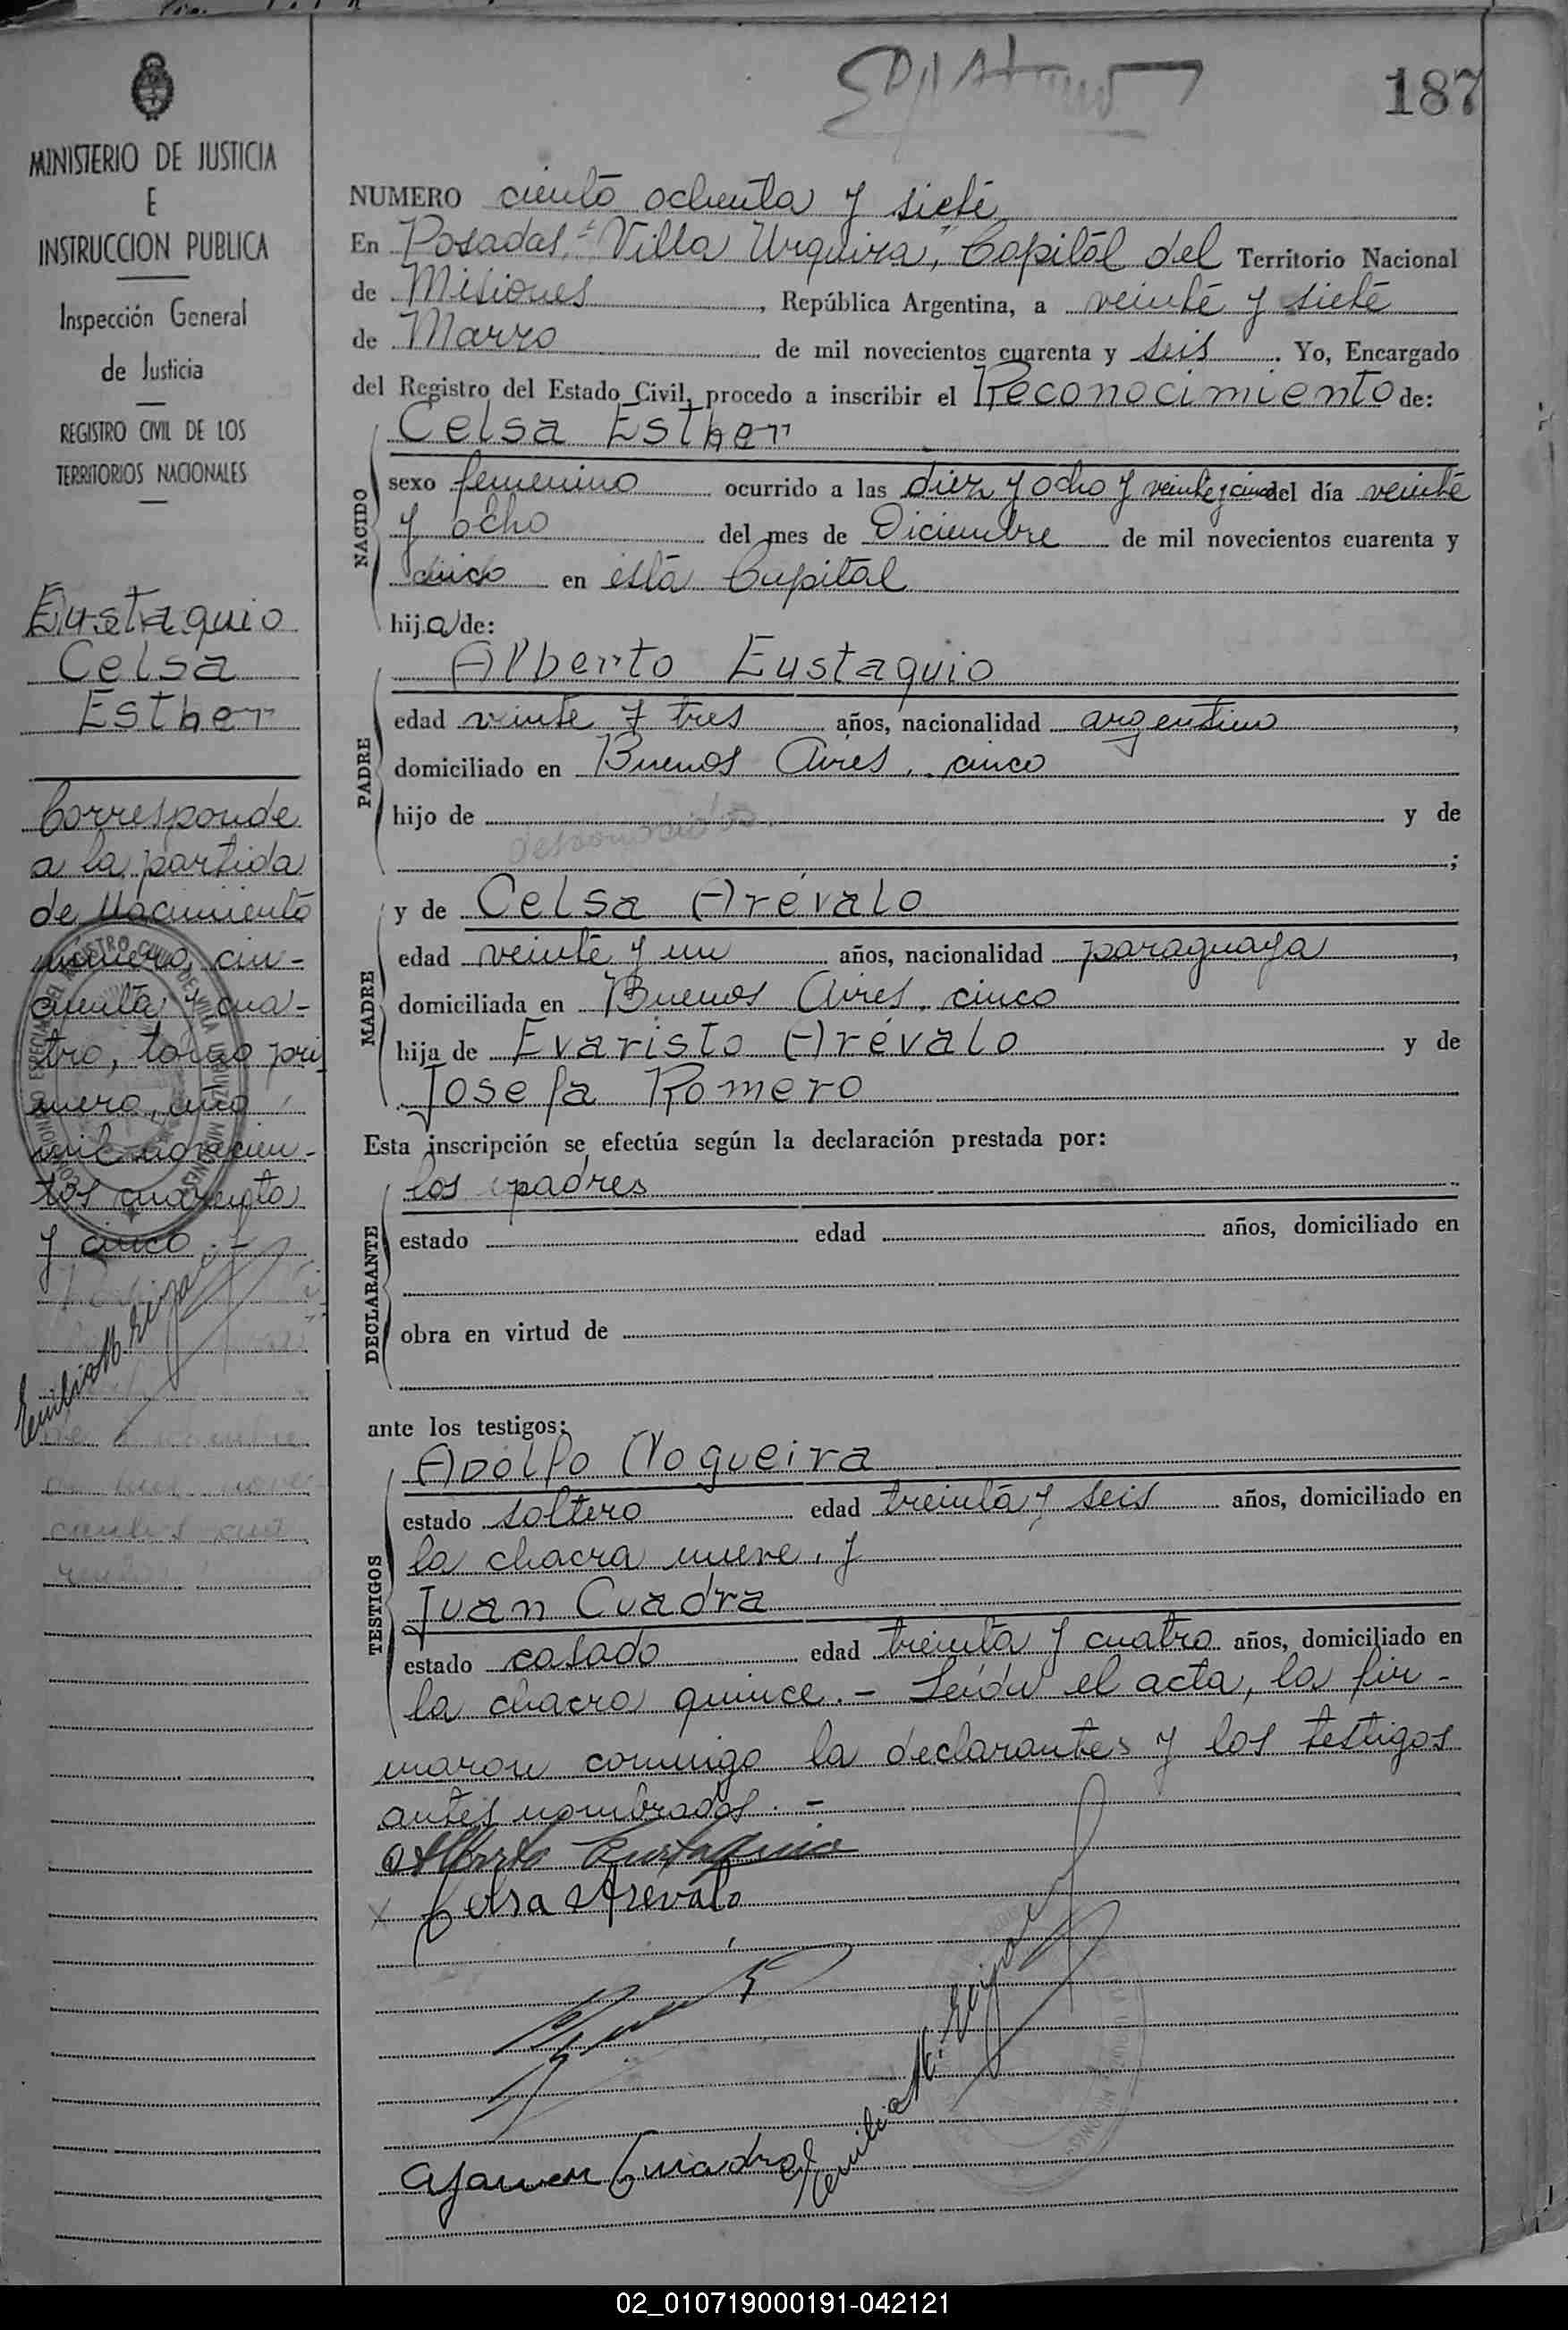 187
MINISTERIO DE JUSTICIA
E
INSTRUCCION PUBLICA
Inspección General
de Justicia
REGISTRO CIVIL DE LOS
TERRITORIOS NACIONALES
Eustaquio
Celsa
Esther
Corresponde
a la partida
de Nacimiento
número, cin-
cuenta y cua-
tro, tomo pri
mero, año
mil novecien-
tos cuarenta
y cinco.-
NUMERO ciento ochenta y siete
En Posadas, "Villa Urquiza", Capital del Territorio Nacional
de Misiones, República Argentina, a veinte y siete
de Marzo de mil novecientos cuarenta y seis. Yo, Encargado
del Registro del Estado Civil, procedo a inscribir el Reconocimiento de:
Celsa Esther
NACIDO
sexo femenino ocurrido a las diez y ocho y veinte y cinco del día veinte
y ocho del mes de Diciembre de mil novecientos cuarenta y
cinco en esta Capital
hija de:
Alberto Eustaquio
PADRE
edad veinte y tres años, nacionalidad argentino,
domiciliado en Buenos Aires, cinco
hijo de y de
desconocidos
;
y de Celsa Arévalo
MADRE
edad veinte y un años, nacionalidad paraguaya,
domiciliada en Buenos Aires, cinco
hija de Evaristo Arévalo y de
Josefa Romero
Esta inscripción se efectúa según la declaración prestada por:
los padres
DECLARANTE
estado edad años, domiciliado en
obra en virtud de
ante los testigos:
Adolfo Nogueira
TESTIGOS
estado soltero edad treinta y seis años, domiciliado en
la chacra nueve, y
Juan Cuadra
estado casado edad treinta y cuatro años, domiciliado en
la chacra quince.- Leída el acta, la fir-
maron conmigo la declarantes y los testigos
antes nombrados.-
Alberto Eustaquio
x Celsa Arévalo
Juan Cuadra
02_010719000191-042121